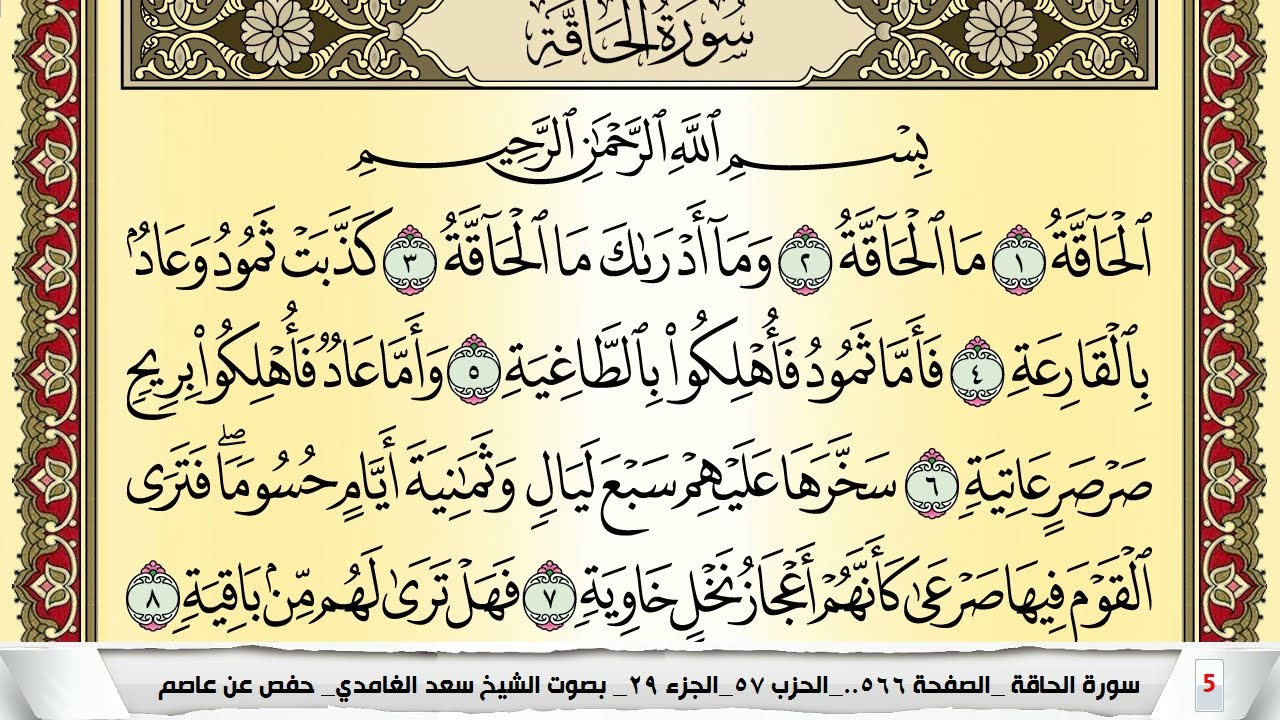 سُورَةُ الحَاقَّةِ
بِسْمِ ٱللَّهِ ٱلرَّحْمَٰنِ ٱلرَّحِيمِ
ٱلْحَآقَّةُ ١ مَا ٱلْحَآقَّةُ ٢ وَمَآ أَدْرَىٰكَ مَا ٱلْحَآقَّةُ ٣ كَذَّبَتْ ثَمُودُ وَعَادُۢ
بِٱلْقَارِعَةِ ٤ فَأَمَّا ثَمُودُ فَأُهْلِكُوا۟ بِٱلطَّاغِيَةِ ٥ وَأَمَّا عَادٌ فَأُهْلِكُوا۟ بِرِيحٍ
صَرْصَرٍ عَاتِيَةٍ ٦ سَخَّرَهَا عَلَيْهِمْ سَبْعَ لَيَالٍ وَثَمَٰنِيَةَ أَيَّامٍ حُسُومًۭاۖ فَتَرَى
ٱلْقَوْمَ فِيهَا صَرْعَىٰ كَأَنَّهُمْ أَعْجَازُ نَخْلٍ خَاوِيَةٍ ٧ فَهَلْ تَرَىٰ لَهُم مِّنۢ بَاقِيَةٍ ٨
سورة الحاقة _الصفحة ٥٦٦.._الحزب ٥٧_الجزء ٢٩_ بصوت الشيخ سعد الغامدي_ حفص عن عاصم
5